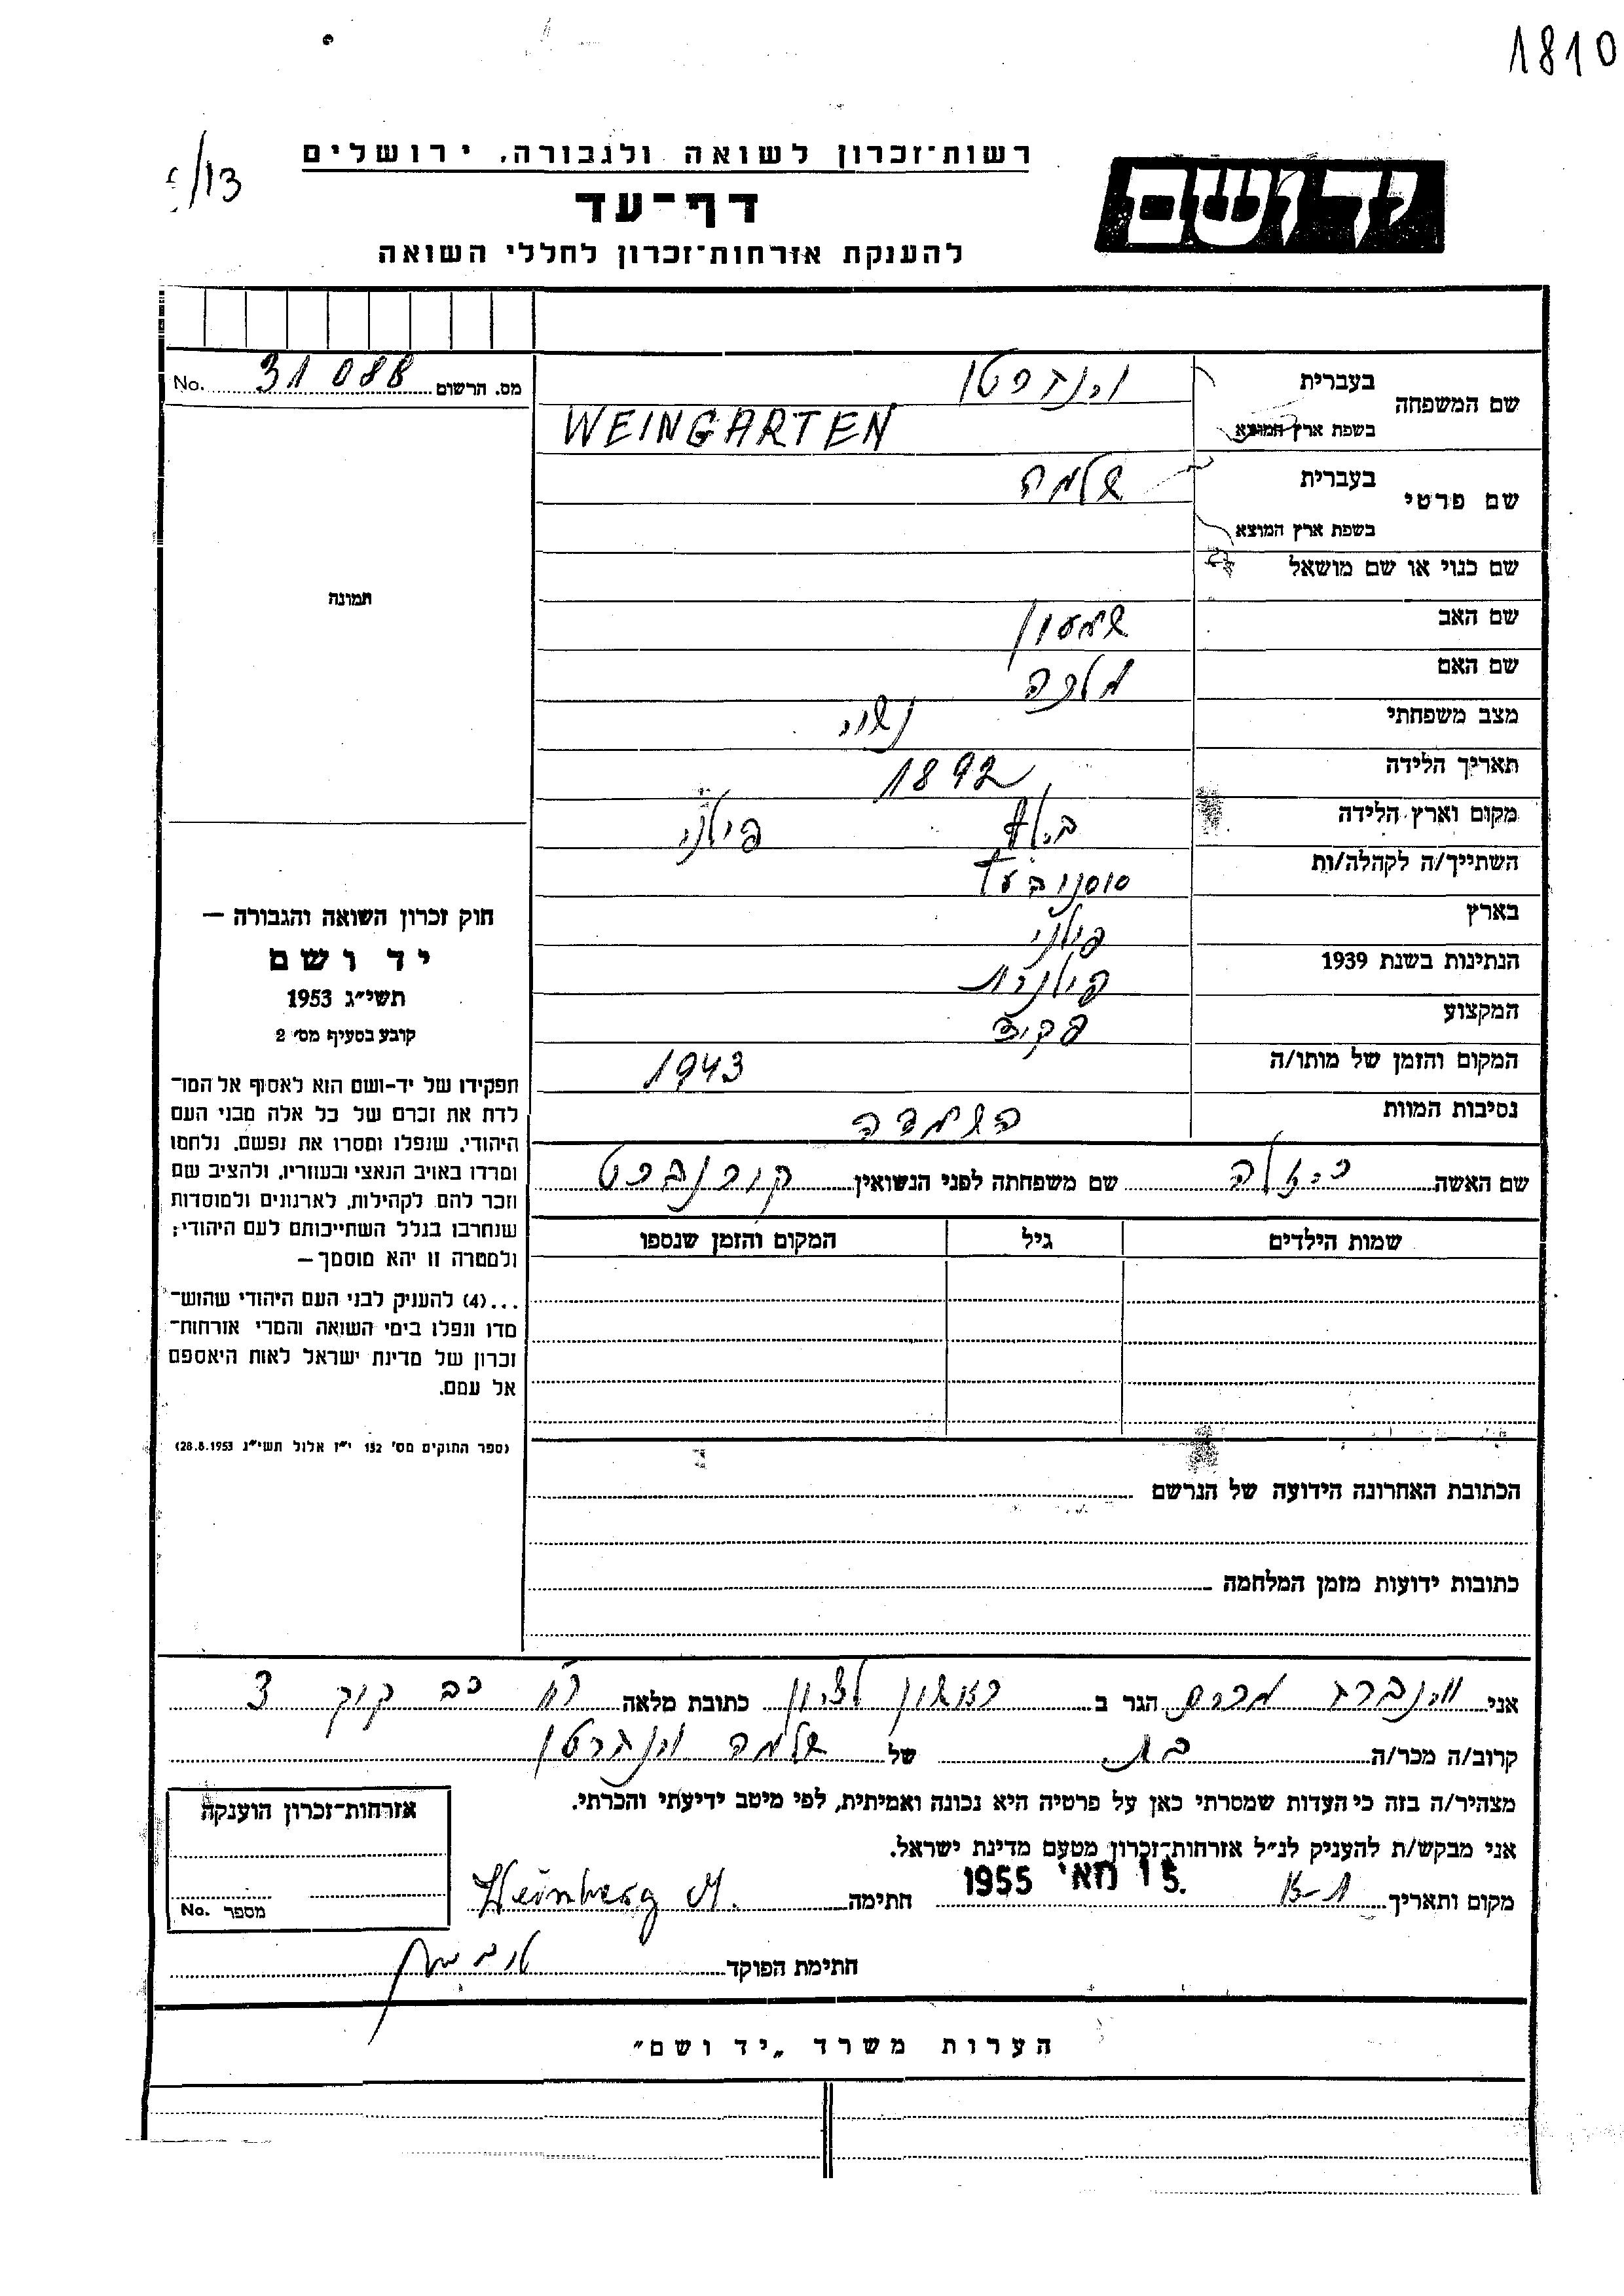 1810
רשות־זכרון לשואה ולגבורה, ירושלים
/13
דף־עד
ידושם
להענקת אזרחות־זכרון לחללי השואה
מס. הרשום 31088 No.
שם המשפחה
בעברית וינגרטן
בשפת ארץ המוצא WEINGARTEN
שם פרטי
בעברית שלמה
בשפת ארץ המוצא
שם כנוי או שם מושאל
תמונה
שם האב שמעון
שם האם מלכה
מצב משפחתי נשוי
תאריך הלידה 1892
מקום וארץ הלידה פולני
השתייך/ה לקהלה/ות
בארץ פולני
הנתינות בשנת 1939 פולנית
המקצוע פקיד
המקום והזמן של מותו/ה 1943
נסיבות המוות השמדה
שם האשה רייזלה שם משפחתה לפני הנשואין
שמות הילדים גיל המקום והזמן שנספו
חוק זכרון השואה והגבורה —
יד ושם
תשי״ג 1953
קובע בסעיף מס׳ 2
תפקידו של יד-ושם הוא לאסוף אל המו־
לדת את זכרם של כל אלה מבני העם
היהודי, שנפלו ומסרו את נפשם, נלחמו
ומרדו באויב הנאצי ובעוזריו, ולהציב שם
וזכר להם לקהילות, לארגונים ולמוסדות
שנחרבו בגלל השתייכותם לעם היהודי;
ולמטרה זו יהא מוסמך —
...(4) להעניק לבני העם היהודי שהוש־
מדו ונפלו בימי השואה והמרי אזרחות־
זכרון של מדינת ישראל לאות היאספם
אל עמם.
(ספר החוקים מס׳ 132 י״ז אלול תשי״ג 28.8.1953)
הכתובת האחרונה הידועה של הנרשם
כתובות ידועות מזמן המלחמה
אני וינברג מרים הגר ב ראשון לציון כתובת מלאה רח רב קוק 3
קרוב/ה מכר/ה בת של שלמה וינגרטן
מצהיר/ה בזה כי העדות שמסרתי כאן על פרטיה היא נכונה ואמיתית, לפי מיטב ידיעתי והכרתי.
אני מבקש/ת להעניק לנ״ל אזרחות־זכרון מטעם מדינת ישראל.
מקום ותאריך 15 מאי 1955 חתימה Weinberg M.
חתימת הפוקד
אזרחות־זכרון הוענקה
מספר No.
הערות משרד „יד ושם״